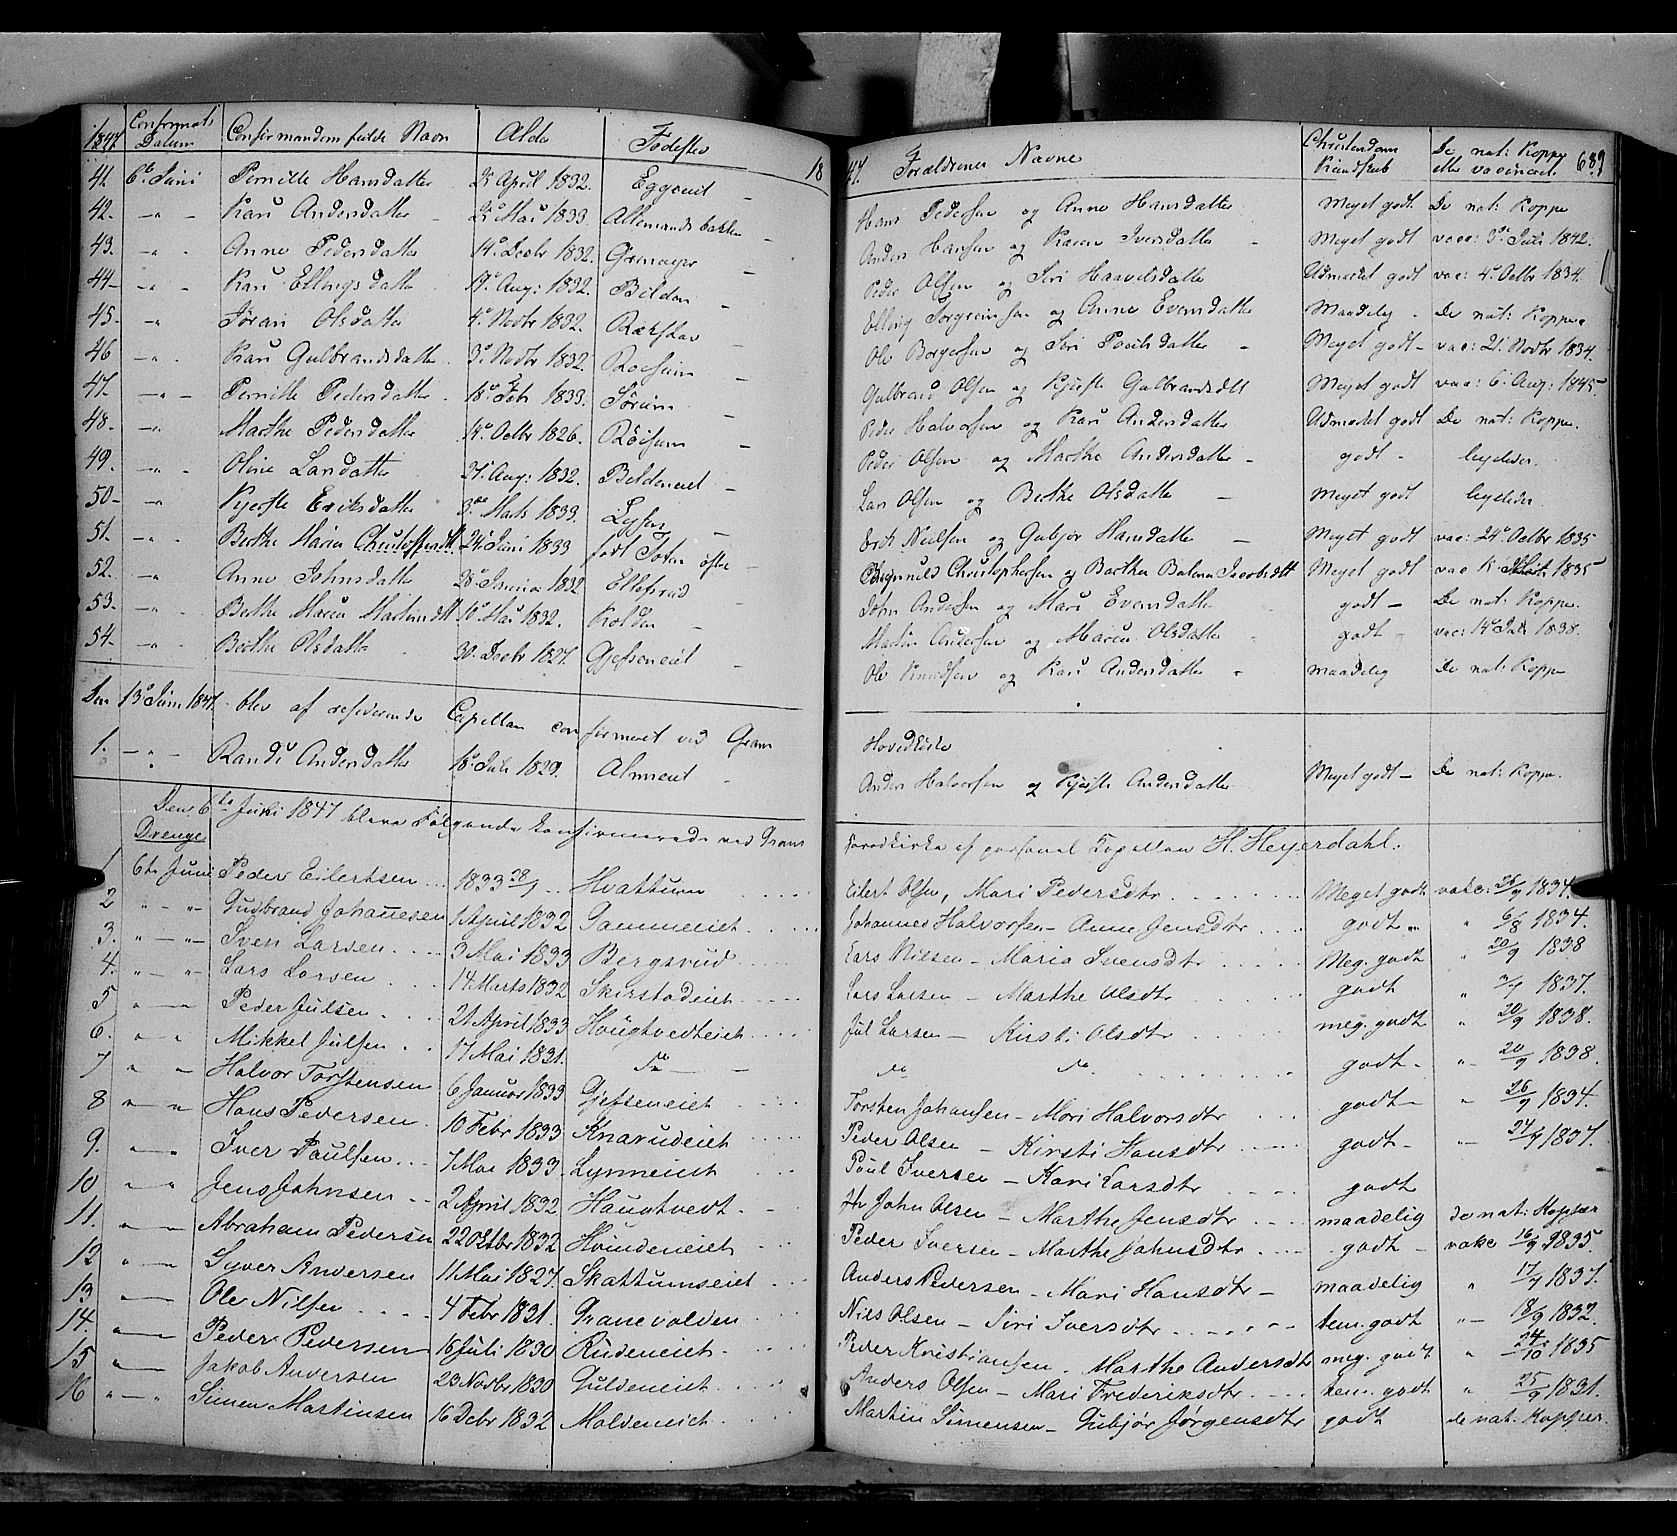 1847 Confirmat. Datum Confirmandens fulde Navn Alder Fødested 18
41. 6te Juni Pernille Hansdatter 2den April 1832. Eggeeiet
42. — " — Kari Andersdatter 2den Mai 1833. Allemandsbakken
43. — " — Anne Pedersdatter 14de Decbr 1832.
44 — " — Kari Ellingsdatter 19de Aug: 1832. Bilden
45. — " Jøran Olsdatter 4de Novbr 1832.
46 — " — Kari Gulbrandsdatter 3de Novbr 1832. Roesum
47. — " — Pernille Pedersdatter 18de Feb 1833. Sørum
48. — " Marthe Pedersdatter 14de Octbr 1826. Røisum
49. — " — Oline Larsdatter 27. Aug: 1832. Bildeneiet
50 — " Kjersti Eriksdatter 3die Marts 1833.
51. — " Berthe Maria Christoffersdtt 24de Juni 1833 født Toten
52. — " Anne Johnsdatter 28de Januar 1832
53. — " — Berthe Maria Martinsdtt 10de Mai 1832. Kolden
54. — " — Berthe Olsdatter 30. Decbr 1827. Gjefseneiet
Den 13de Juni 1847. blev af residerende Capellan confirmeret ved Gran
1. — " — Randi Andersdatter 18de Juli 1829. Almeeiet
Den 6te Juni 1847 bleve Følgende konfirmerede ved Grans
Drenge
1 6te Juni Peder Eilertsen 1833 28/1 Hvattum
2 " — " Gudbrand Johannesen 1 April 1832 Gammeeiet
3. " — " Sven Larsen 3 Mai 1833 Bergsrud
4. " — " Lars Larsen 14 Marts 1832 Skirstadeiet
5 " — Peder Julsen 21 April 1833 Hougtvedteiet
6. " — " Mikkel Julsen 17 Mai 1831. do
7 " — " Halvor Torstensen 6 Januar 1833 Gjefseneiet
8 " — " Hans Pedersen 10 Febr 1833 Knarudeiet
9. " — " Iver Paulsen 7 Mai 1833 Lynneeiet
10 " — " Jens Johnsen 2 April 1832 Hougtvedt
11. " — " Abraham Pedersen 22 Oktbr 1832 Hvindeneiet
12 " — Syver Andersen 11 Mai 1827. Skattumseiet
13 " — Ole Nilsen 4 Febr 1831. Granevolden
14. " — Peder Pedersen 16 Juli 1830 Rudeneiet
15 " — Jakob Andersen 23 Novbr 1830 Guldeneiet
16 " — " Simen Martinsen 16 Debr 1832 Moldeneiet
47. Forældrenes Navne Christendoms Kundskab De nat: Kopper eller vaccineret 689
Hans Pedersen og Anne Hansdatter Meget godt. De nat: Koppe
Anders Hansen og Karen Iversdatter Meget godt vacc: 3de Juli 1842.
Peder Olsen og Siri Haavelsdatter Udmærket godt vac: 4de Octbr 1834.
Elling Torgrimsen og Anne Evensdatter Maadelig De nat: Koppe
Ole Borgersen og Siri Poulsdatter Meget godt — vac: 21. Novbr 1834.
Gulbrand Olsen og Kjersti Gulbrandsdtt Meget godt vac: 6. Aug: 1845
Peder Halvorsen og Kari Andersdatter Udmærket godt De nat: Koppe.
Peder Olsen og Marthe Andersdatter — godt — ligeledes.
Lars Olsen og Berthe Olsdatter — Meget godt ligeledes
Erik Nielsen og Gubjør Hansdatter — Meget godt vac: 24de Octbr 1835
Christophersen og Barthea Balena Jacobsdtt Meget godt vac 1835
John Andersen og Mari Evensdatter godt — De nat: Koppe
Martin Andersen og Maria Olsdatter godt — vac: 14de Juli 1838.
Ole Knudsen og Kari Andersdatter maadelig De nat: Koppe
Hovedkirke
Anders Halvorsen og Kjersti Andersdatter Meget godt — De nat: Koppe.
Hovedkirke af personel Capellan H. Heyerdahl:
Eilert Olsen, Mari Pedersdtr Meget godt vakc: 26/9 1834.
Johannes Halvorsen — Anne Jensdtr godt " 6/8 1834.
Lars Nilsen — Maria Svensdtr Meg. godt " 20/9 1838
Lars Larsen — Marthe Olsdtr godt " 1837.
Jul Larsen — Kirsti Olsdtr meg. godt " 20/9 1838.
do do godt — " 20/9 1838.
Torsten Johansen — Mari Halvorsdtr godt — " 26/9 1834.
Peder Olsen — Kirsti Hansdtr godt — " 24/9 1837.
Paul Iversen — Kari Larsdtr godt
John Olsen — Marthe Jensdtr maadelig de nat: Kopper
Peder Iversen — Marthe Johnsdtr godt — vakc 16/9 1835.
Anders Pedersen — Mari Hansdtr — maadelig " 17/9 1837.
Nils Olsen — Siri Iversdtr tem. godt " 18/9 1832.
Peder Kristiansen. Marthe Andersdtr meg. godt " 24/10 1835
Anders Olsen — Mari Frederiksdtr tem. godt " 25/9 1831.
Martin Simensen — Gubjør Jørgensdtr godt de nat. Kopper.